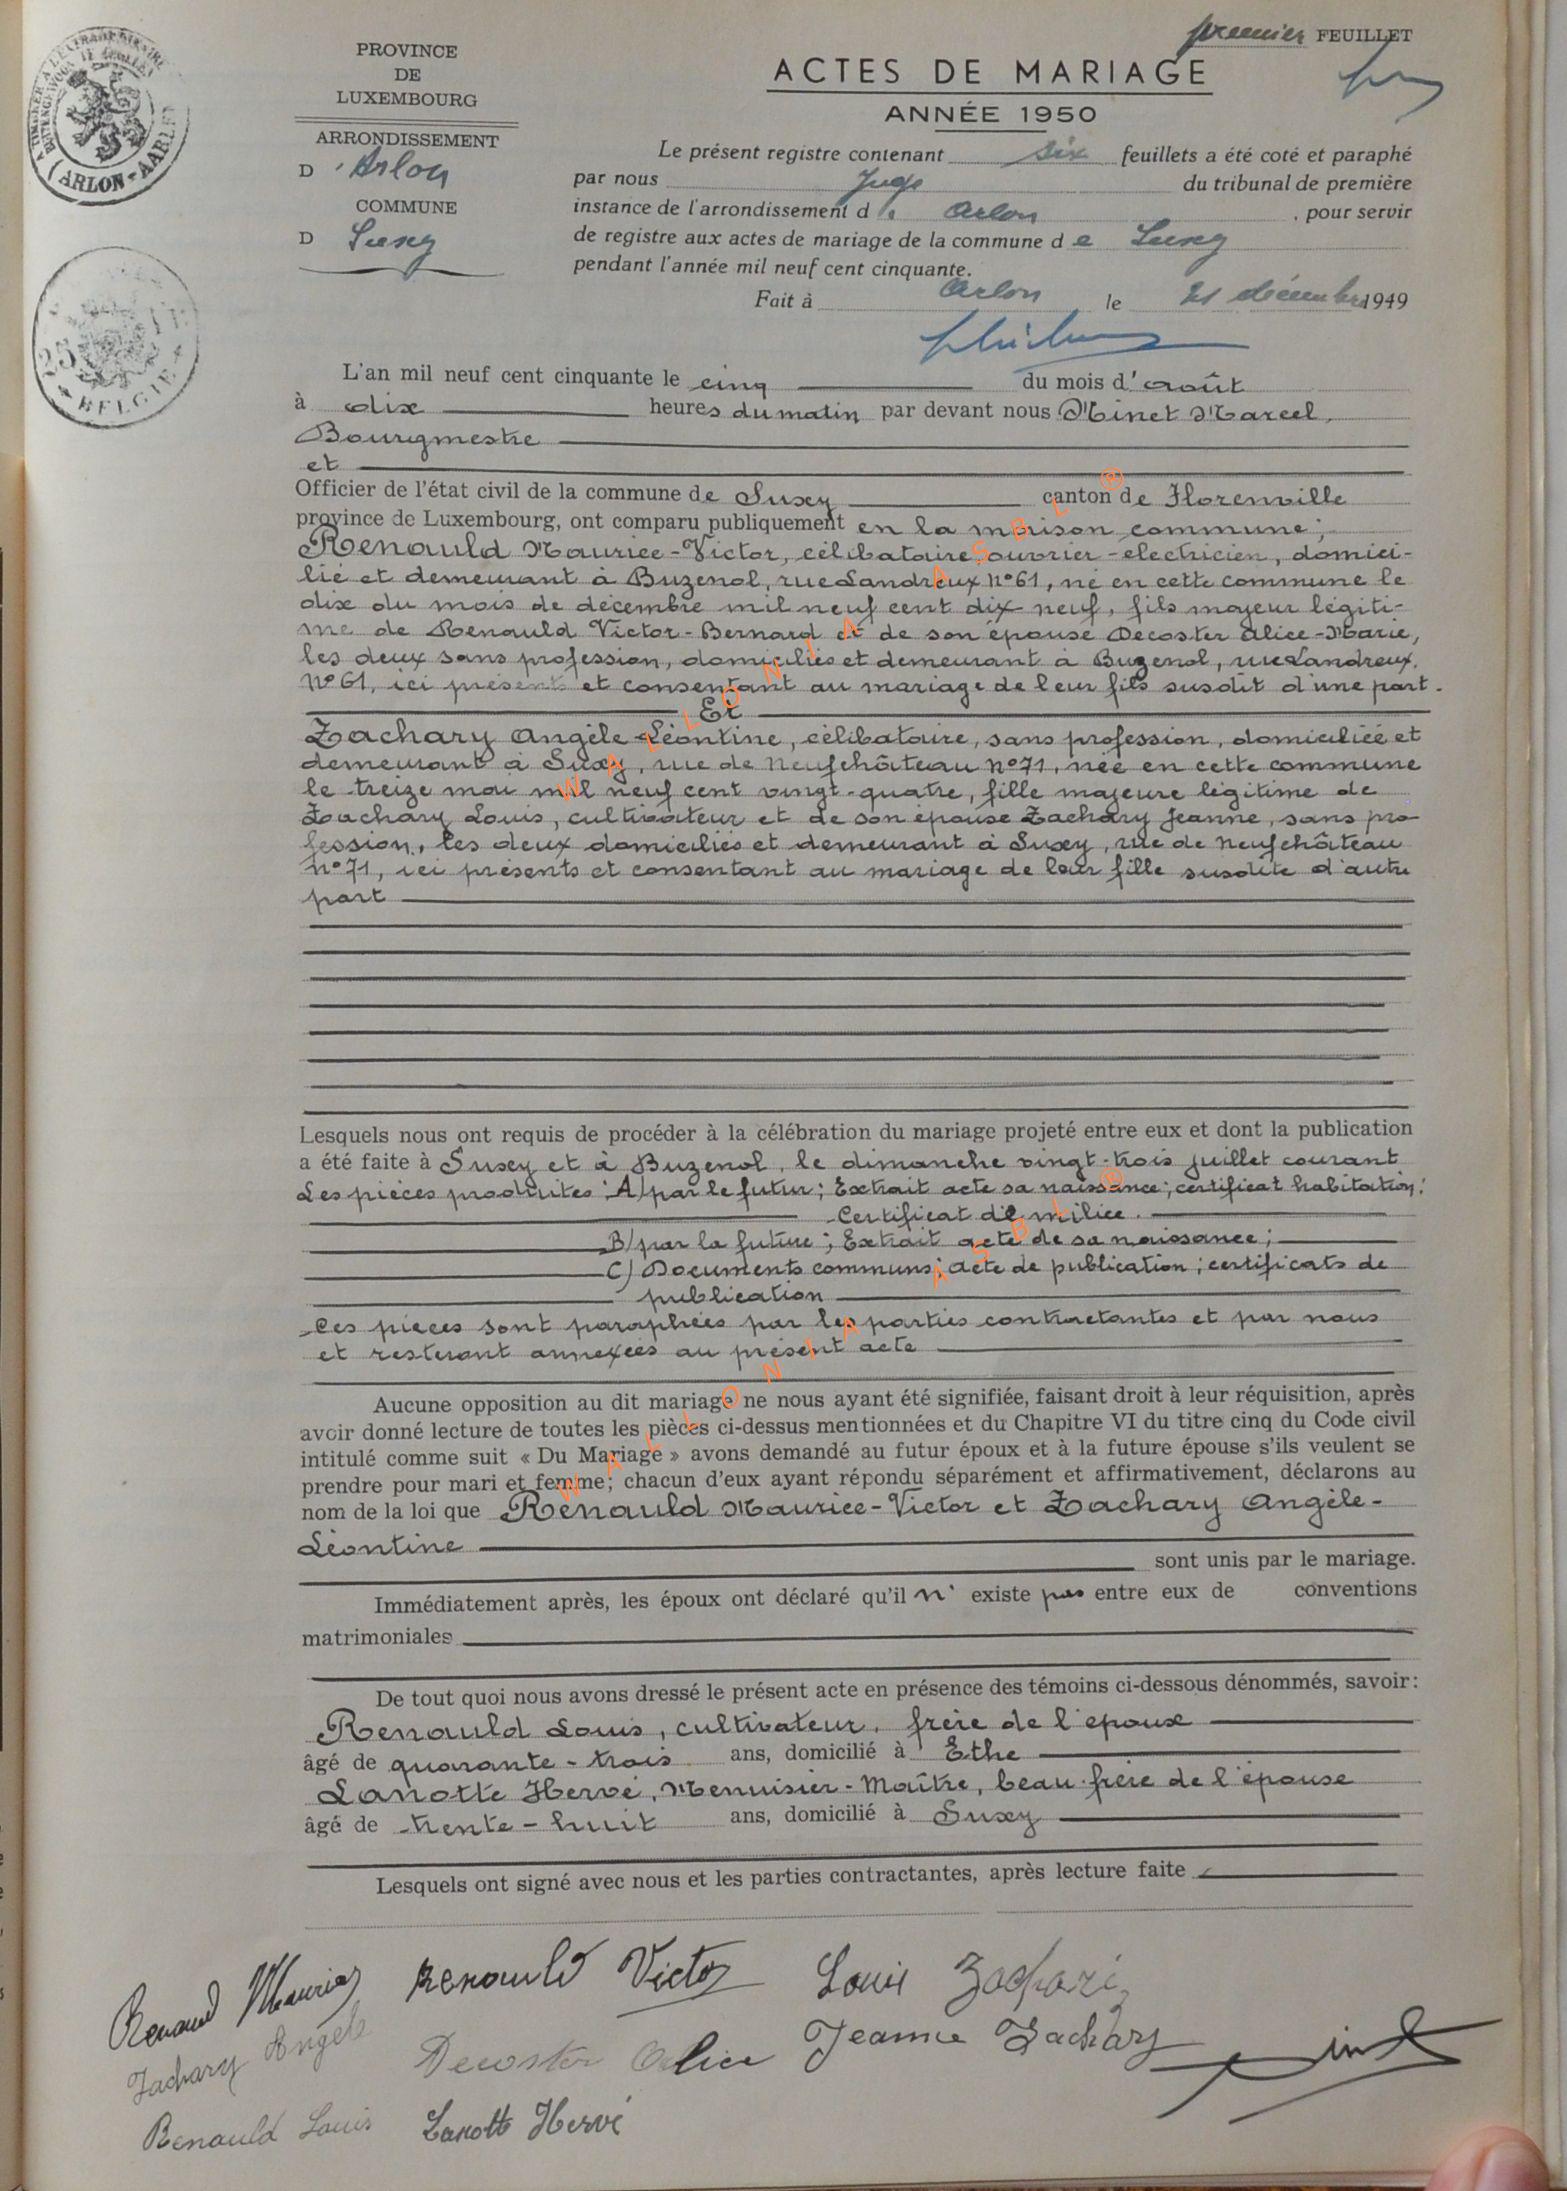 premier FEUILLET
PROVINCE
DE
LUXEMBOURG
ARRONDISSEMENT
D'Arlon
COMMUNE
D Suxy
ARLON-AARLEN
25
BELGIE
ACTES DE MARIAGE
ANNÉE 1950
Le présent registre contenant six feuillets a été coté et paraphé
par nous Juge du tribunal de première
instance de l'arrondissement d' Arlon, pour servir
de registre aux actes de mariage de la commune de Suxy
pendant l'année mil neuf cent cinquante.
Fait à Arlon le 21 décembre 1949
L'an mil neuf cent cinquante le cinq du mois d'août
à dix heures du matin par devant nous Minet Marcel,
Bourgmestre
et
Officier de l'état civil de la commune de Suxy canton de Florenville
province de Luxembourg, ont comparu publiquement en la maison commune;
Renauld Maurice-Victor, célibataire ouvrier-electricien, domici-
lié et demeurant à Buzenol, rue Landreux n°61, né en cette commune le
dix du mois de décembre mil neuf cent dix-neuf, fils majeur légiti-
me de Renauld Victor-Bernard et de son épouse Decoster Alice-Marie,
les deux sans profession, domiciliés et demeurant à Buzenol, rue Landreux,
N°61, ici présents et consentant au mariage de leur fils susdit d'une part.
Et
Zachary Angèle-Léontine, célibataire, sans profession, domiciliée et
demeurant à Suxy, rue de Neufchâteau n°71, née en cette commune
le treize mai mil neuf cent vingt-quatre, fille majeure légitime de
Zachary Louis, cultivateur et de son épouse Zachary Jeanne, sans pro-
fession, les deux domiciliés et demeurant à Suxy, rue de Neufchâteau
n°71, ici présents et consentant au mariage de leur fille susdite d'autre
part
Lesquels nous ont requis de procéder à la célébration du mariage projeté entre eux et dont la publication
a été faite à Suxy et à Buzenol, le dimanche vingt-trois juillet courant
Les pièces produites: A) par le futur; Extrait acte sa naissance; certificat habitation;
Certificat de milice.
B) par la future; Extrait acte de sa naissance;
C) Documents communs; acte de publication; certificats de
publication
Ces pièces sont paraphées par les parties contractantes et par nous
et resteront annexées au présent acte
Aucune opposition au dit mariage ne nous ayant été signifiée, faisant droit à leur réquisition, après
avoir donné lecture de toutes les pièces ci-dessus mentionnées et du Chapitre VI du titre cinq du Code civil
intitulé comme suit « Du Mariage » avons demandé au futur époux et à la future épouse s'ils veulent se
prendre pour mari et femme; chacun d'eux ayant répondu séparément et affirmativement, déclarons au
nom de la loi que Renauld Maurice-Victor et Zachary Angèle-
Léontine
sont unis par le mariage.
Immédiatement après, les époux ont déclaré qu'il n' existe pas entre eux de conventions
matrimoniales
De tout quoi nous avons dressé le présent acte en présence des témoins ci-dessous dénommés, savoir:
Renauld Louis, cultivateur, frère de l'époux
âgé de quarante-trois ans, domicilié à Ethe
Lanotte Hervé, Menuisier-Maître, beau-frère de l'épouse
âgé de trente-huit ans, domicilié à Suxy
Lesquels ont signé avec nous et les parties contractantes, après lecture faite
Renauld Maurice Renauld Victor Louis Zachari
Zachary Angèle Decoster Alice Jeanne Zachary Minet
Renauld Louis Lanotte Hervé
WALLONIA ASBL ®
WALLONIA ASBL ®